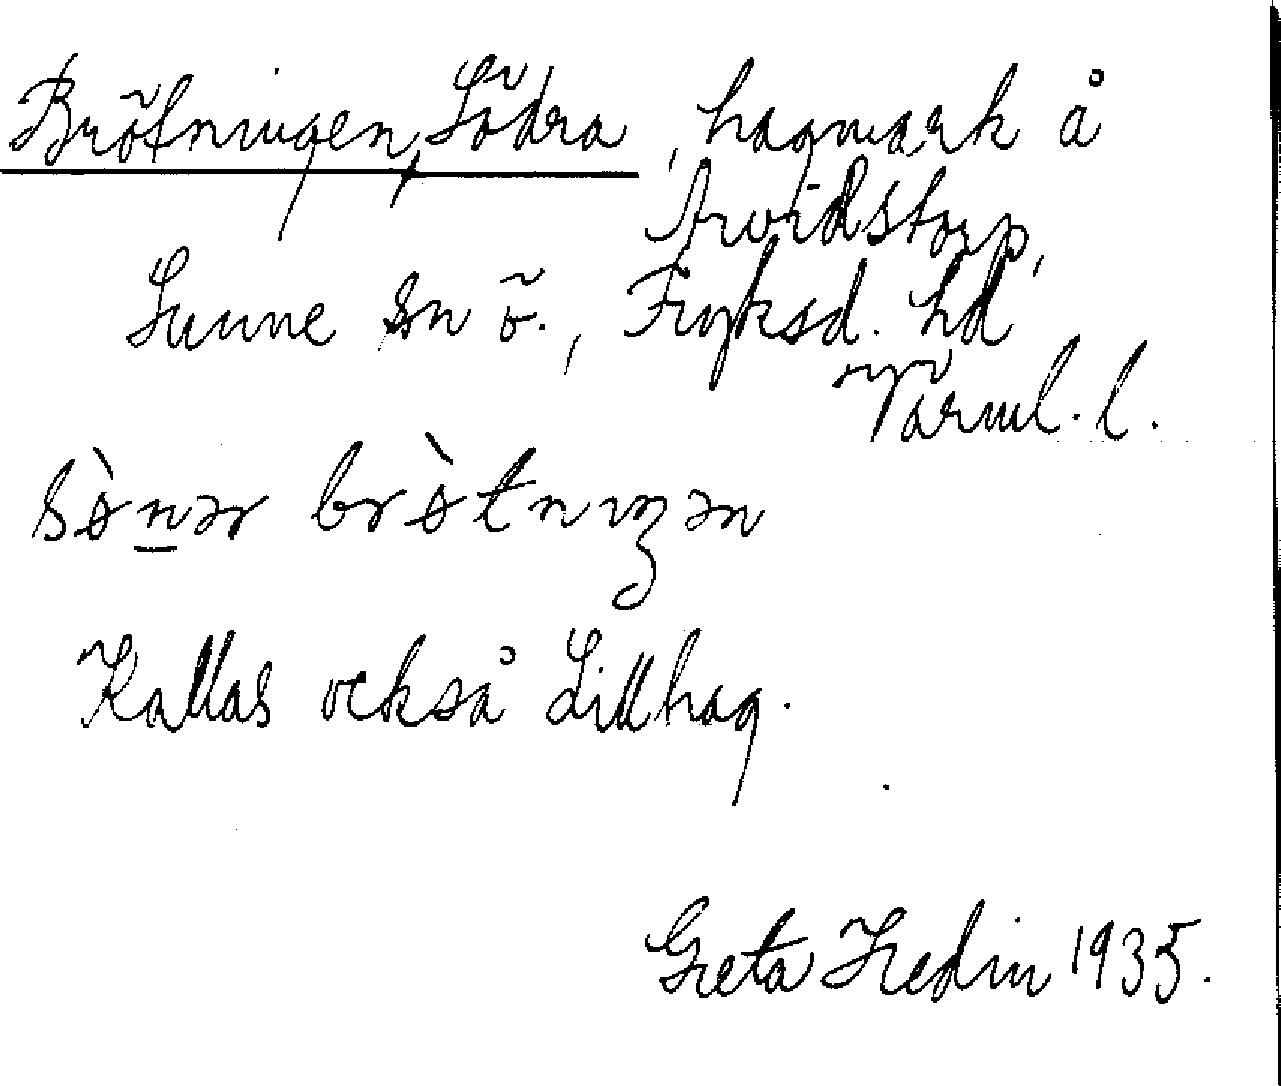 Brötningen, Södra, hagmark å
Arvidstorp,
Sunne sn ö., Fryksd. hd
Värml. l.
sø̀n̲ər brø̀tnıŋən
Kallas också Lillhag.
Greta Hedin 1935.